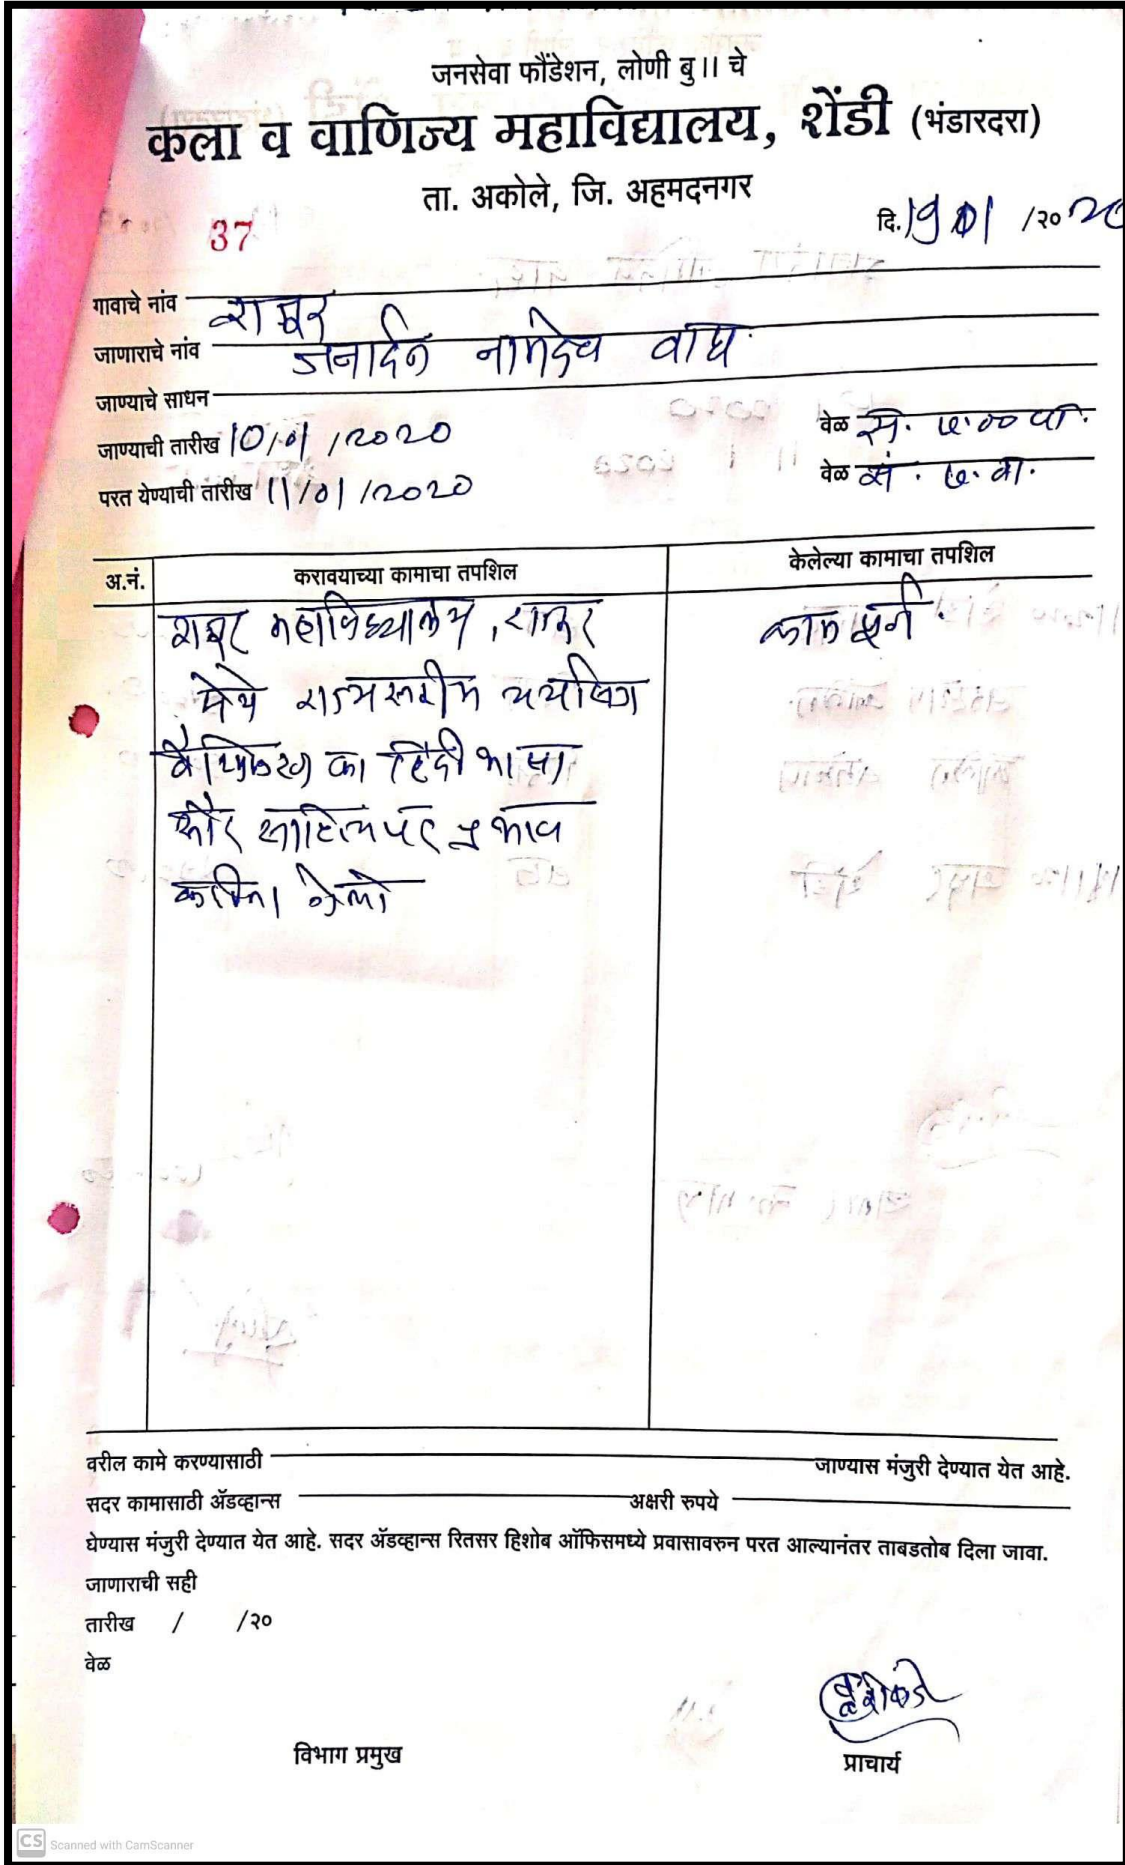 जनसेवा फौंडेशन, लोणी बु॥ चे
कला व वाणिज्य महाविद्यालय, शेंडी (भंडारदरा)
ता. अकोले, जि. अहमदनगर
37
दि. /२०
गावाचे नांव
जाणाराचे नांव जनार्दन नामदेव वाघ
जाण्याचे साधन
जाण्याची तारीख 10/01/2020 वेळ
परत येण्याची तारीख 11/01/2020 वेळ
अ.नं. करावयाच्या कामाचा तपशिल केलेल्या कामाचा तपशिल
महाविध्यालय, काम पूर्ण
येथे राज्यस्तरीय
का हिंदी भाषा
और साहित्य पर प्रभाव
गेलो
वरील कामे करण्यासाठी जाण्यास मंजुरी देण्यात येत आहे.
सदर कामासाठी अ‍ॅडव्हान्स अक्षरी रुपये
घेण्यास मंजुरी देण्यात येत आहे. सदर अ‍ॅडव्हान्स रितसर हिशोब ऑफिसमध्ये प्रवासावरुन परत आल्यानंतर ताबडतोब दिला जावा.
जाणाराची सही
तारीख / /२०
वेळ
विभाग प्रमुख प्राचार्य
CS Scanned with CamScanner